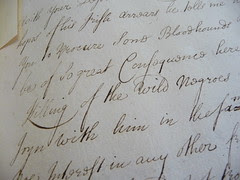 with your
of this Irish arrears he tells me
you to procure Some Bloodhounds
be of So great Consequence here
Killing of the Wild Negroes
Joyn with him in the
Interest in any other